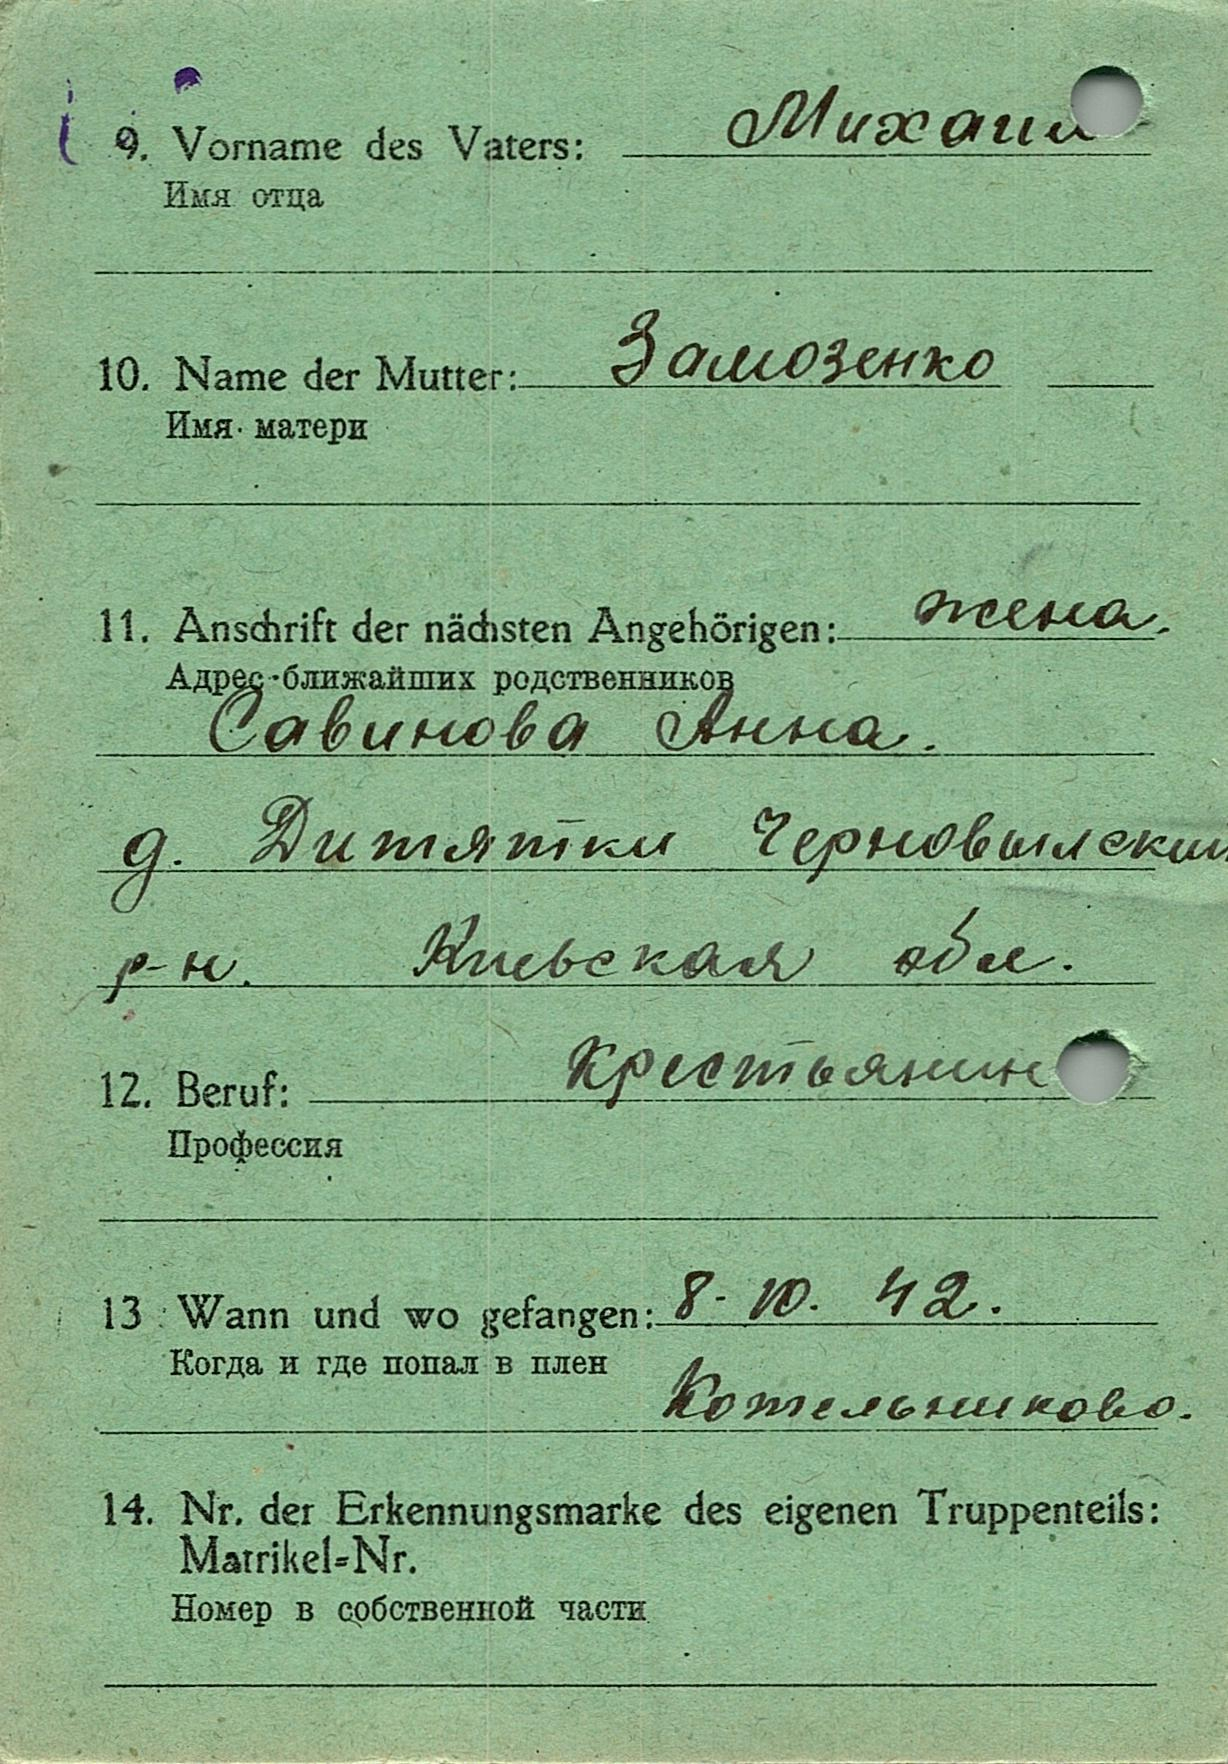 9. Vorname des Vaters: Михаил
Имя отца
10. Name der Mutter: Замозенко
Имя матери
11. Anschrift der nächsten Angehörigen: жена.
Адрес ближайших родственников
Савинова Анна.
д. Дитятки Черновылский
р-н. Киевская обл.
12. Beruf: крестьянин
Профессия
13 Wann und wo gefangen: 8-10. 42.
Когда и где попал в плен
Котельниково.
14. Nr. der Erkennungsmarke des eigenen Truppenteils:
Matrikel-Nr.
Номер в собственной части